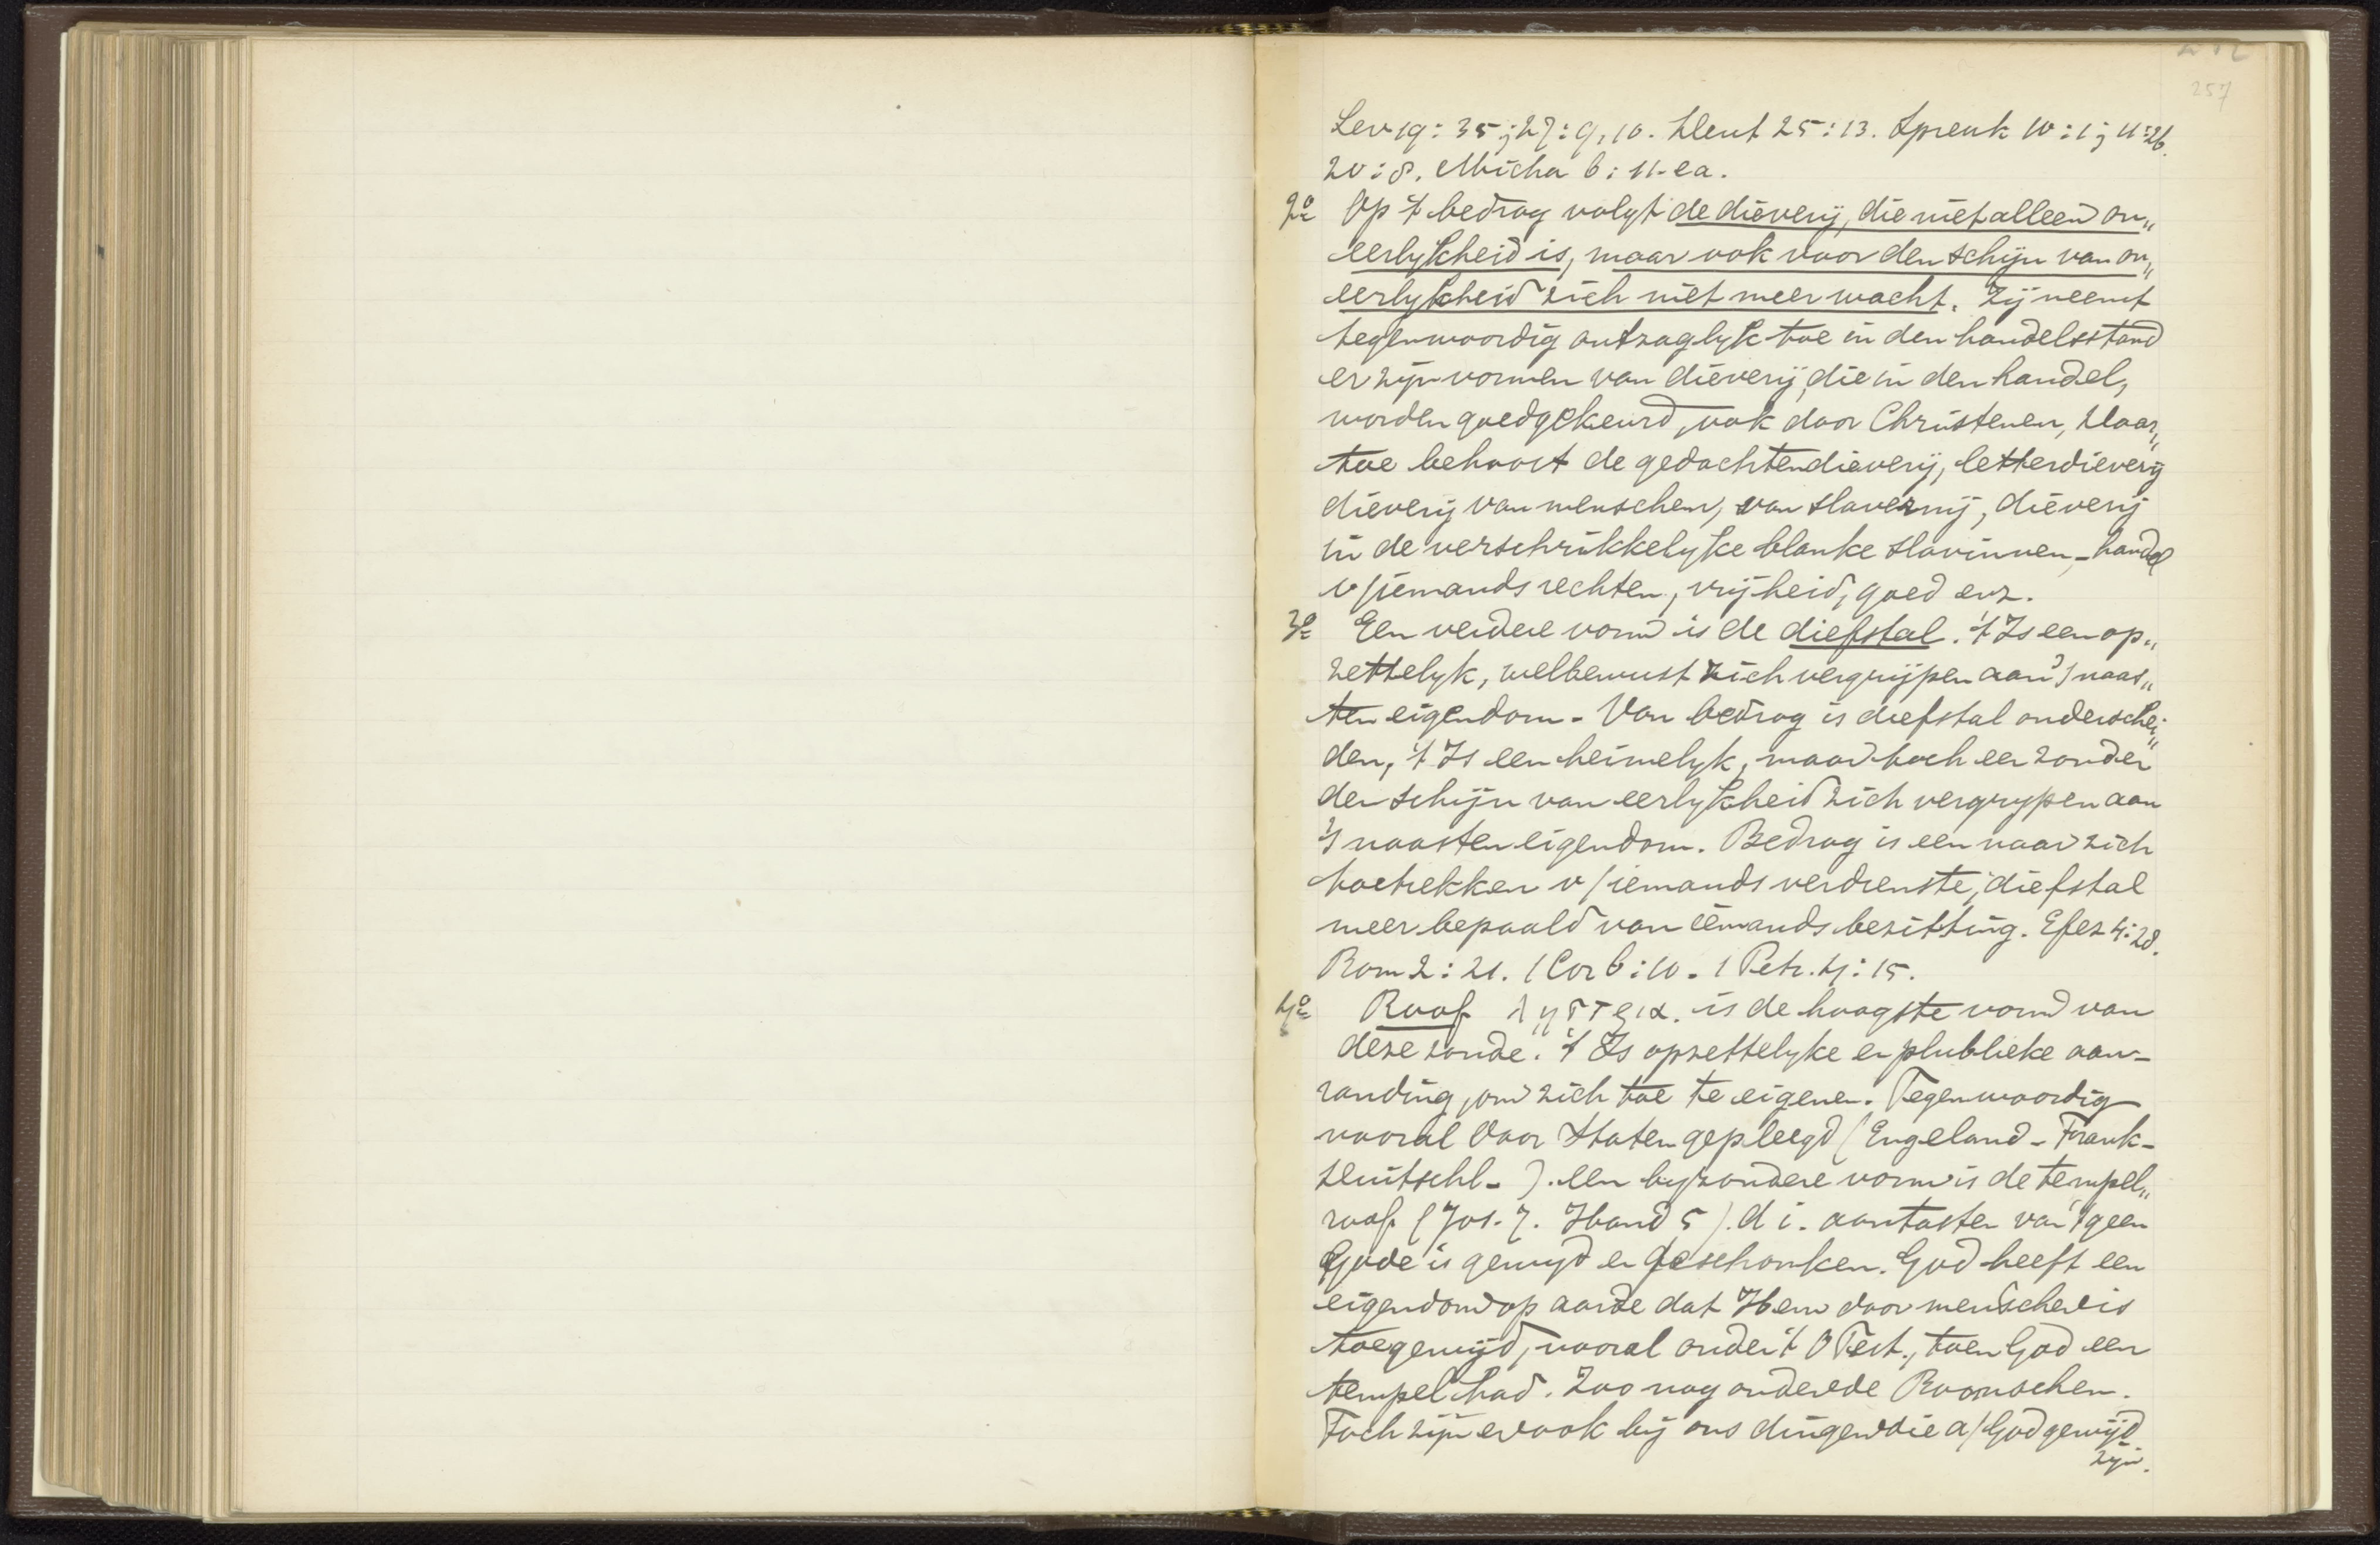 257
Lev 19: 35; 27: 9, 10. Deut 25: 13. Spreuk 10: 1; 11: 26.
20: 8. Micha 6: 11. ea.
2º Op 't bedrog volgt de dieverij, die niet alleen on„
eerlykheid is, maar ook voor den schijn van on„
eerlykheid zich niet meer wacht. Zij neemt
tegenwoordig ontzaglyk toe in den handelsstand
er zijn vormen van dieverij, die in den handel,
worden goedgekeurd, ook door Christenen, Daar„
toe behoort de gedachtendieverij, letterdieverij
dieverij van menschen, van slavernij, dieverij
in de verschrikkelyke blanke slavinnen-handel
v/iemands rechten, vrijheid, goed enz.
3º Een verdere vorm is de diefstal. 't Is een op„
zettelyk, welbewust zich vergrijpen aan 's naas„
ten eigendom. Van bedrog is diefstal onderschei„
den, 't Is een heimelyk, maar toch een zonder
den schijn van eerlykheid zich vergrypen aan
's naasten eigendom. Bedrog is een naar zich
toetrekken v/iemands verdienste, diefstal
meer bepaald van iemands bezitting. Efez 4: 28.
Rom 2: 21. 1 Cor 6: 10. 1 Petr. 4: 15.
4º Roof λῃστεια. is de hoogste vorm van
deze zonde. 't Is opzettelyke en plublieke aan-
randing, om zich toe te eigenen. Tegenwoordig
vooral door Staten gepleegd (Engeland - Frank-
Duitschl-). een byzondere vorm is de tempel„
roof (Jos. 7. Hand 5). d i. aantasten van 't geen
Gode is gewyd en geschonken. God heeft een
eigendom op aarde dat Hem door menschen is
toegewijd, vooral onder 't O Test., toen God een
tempel had. Zoo nog onder de Roomschen.
Toch zijn er ook bij ons dingen die a/God gewijd
zijn.